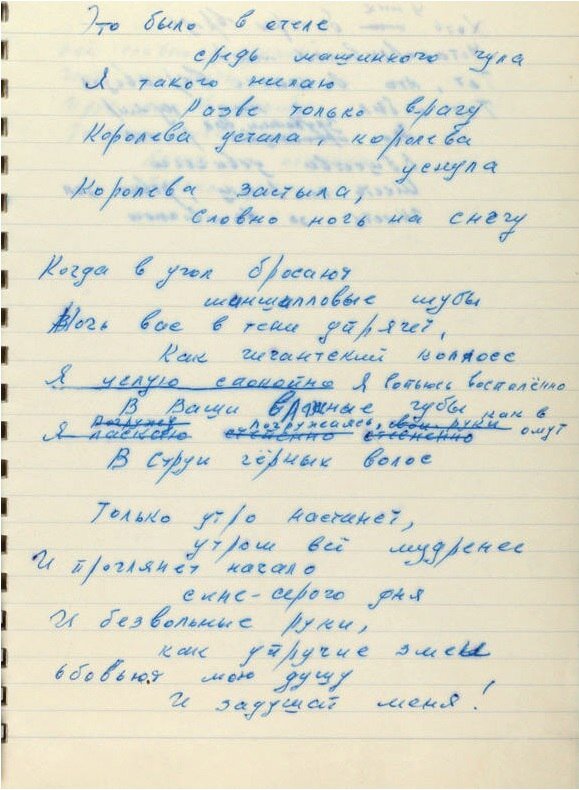 Это было в отеле
средь машинного гула
Я такого желаю
Разве только врагу
Королева устала, королева
уснула
Королева застыла,
словно ночь на снегу
Когда в угол бросают
шиншилловые шубы
Ночь вас в тени упрячет,
Как гигантский колосс
Я целую спокойно Я вопьюсь воспалённо
В Ваши влажные губы
Погружу погружаясь, свои руки как в
Я ласкаю степенно степенно омут
В струи чёрных волос
Только утро настанет,
утром всё мудренее
И проглянет начало
сине-серого дня
И безвольные руки,
как упругие змеи
Обовьют мою душу
И задушат меня!